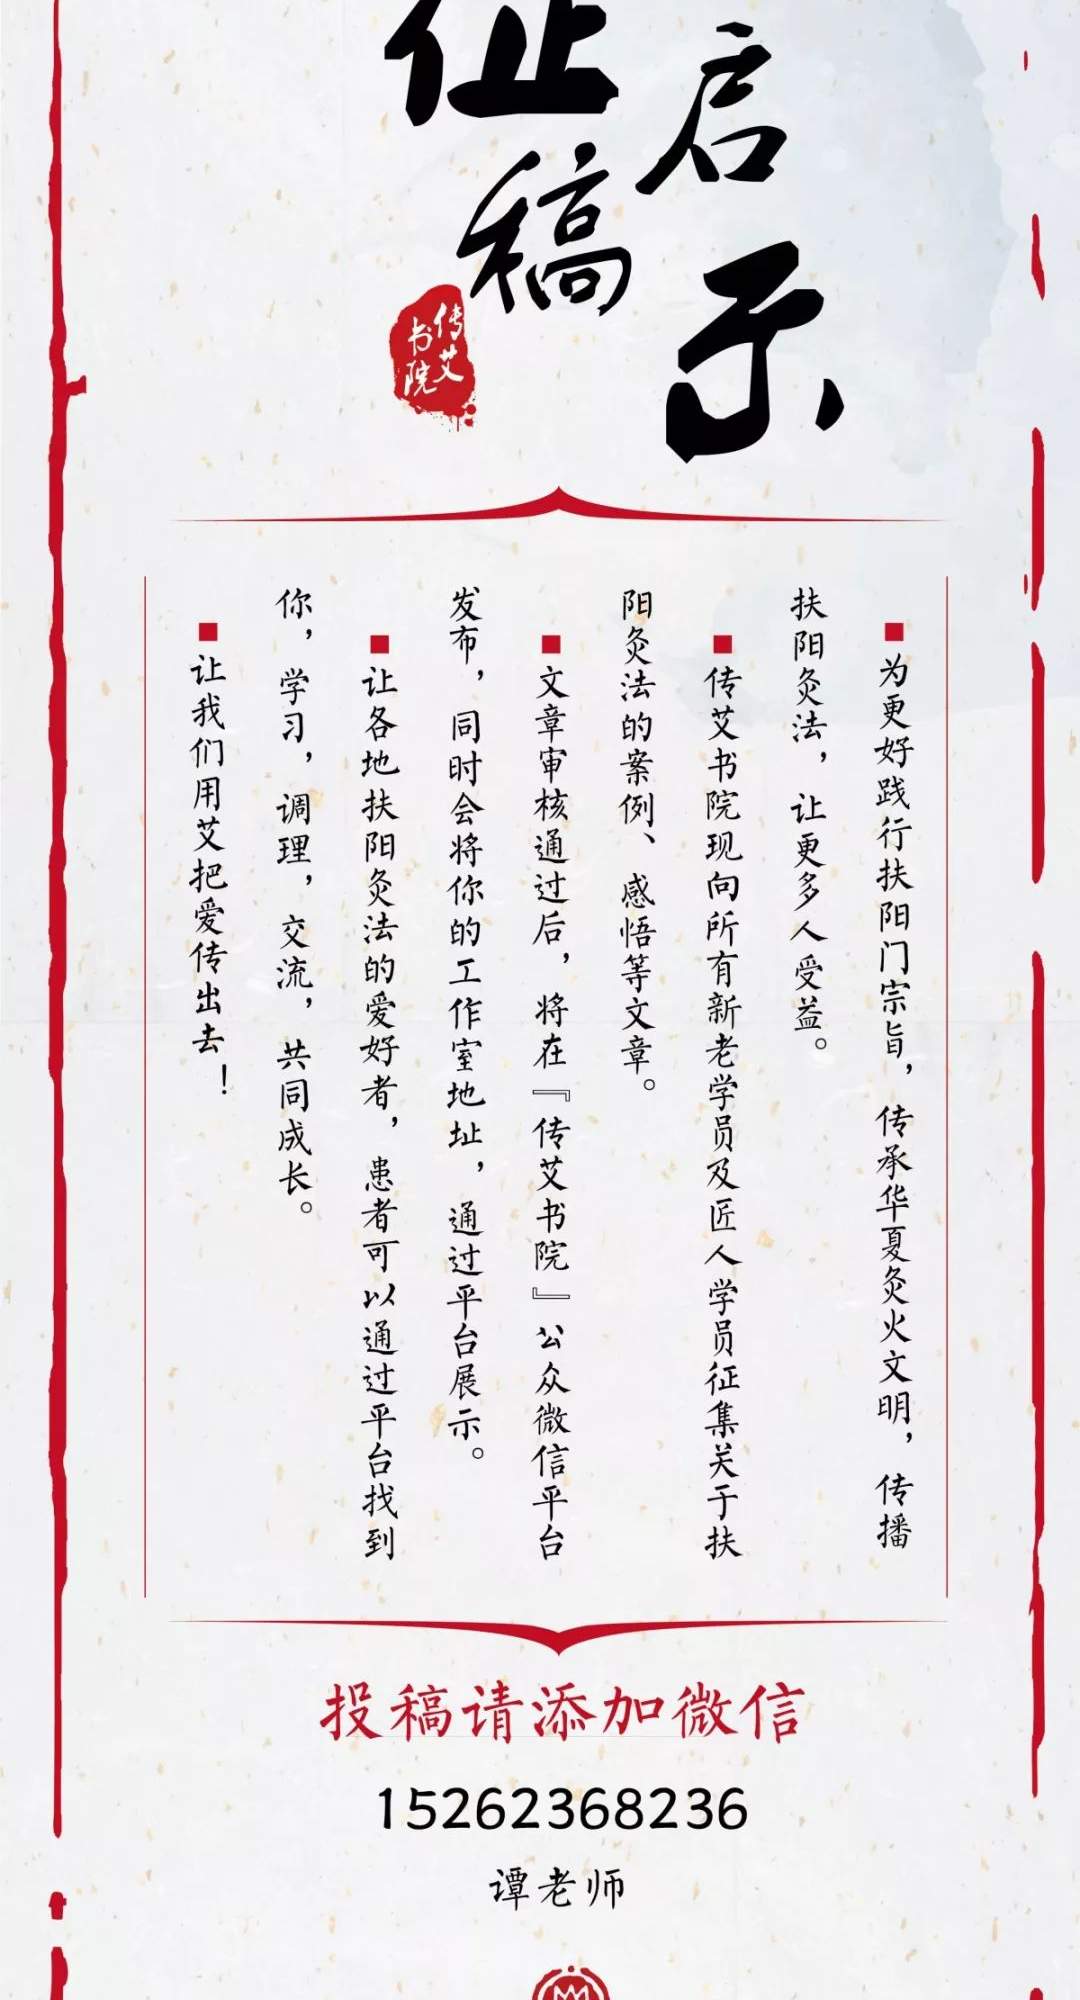 征稿
启示
传艾
书院
■为更好践行扶阳门宗旨，传承华夏灸火文明，传播
扶阳灸法，让更多人受益。
■传艾书院现向所有新老学员及匠人学员征集关于扶
阳灸法的案例、感悟等文章。
■文章审核通过后，将在『传艾书院』公众微信平台
发布，同时会将你的工作室地址，通过平台展示。
■让各地扶阳灸法的爱好者，患者可以通过平台找到
你，学习，调理，交流，共同成长。
■让我们用艾把爱传出去！
投稿请添加微信
15262368236
谭老师